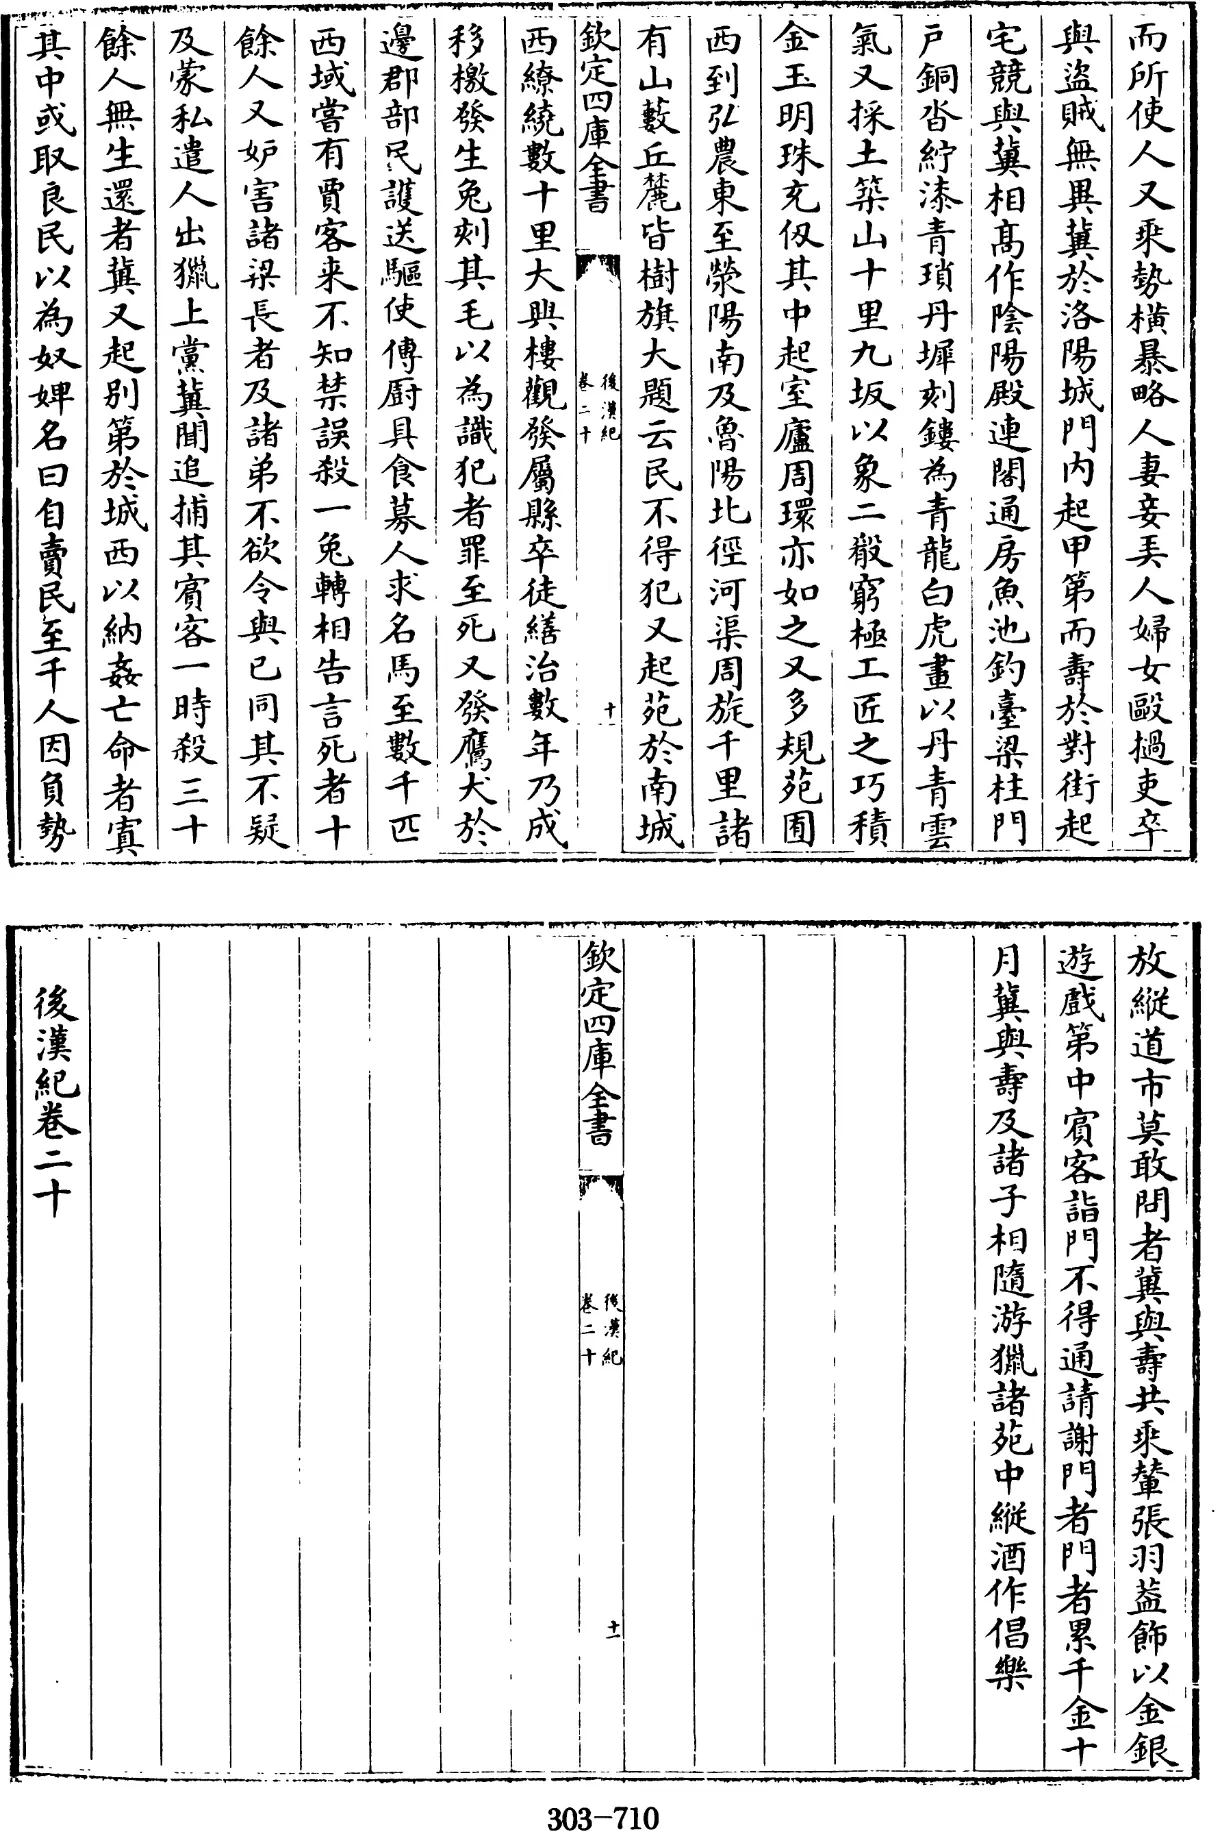 而所使人又乘勢橫暴略人妻妾弄人婦女毆撾吏卒
與盜賊無異冀於洛陽城門内起甲第而壽於對街起
宅競與冀相髙作陰陽殿連閣通房魚池釣臺梁柱門
戶銅沓紵漆青瑣丹墀刻鏤為青龍白虎畫以丹青雲
氣又採土築山十里九坂以象二殽窮極工匠之巧積
金玉明珠充仭其中起室廬周環亦如之又多規苑囿
西到弘農東至滎陽南及魯陽北徑河渠周旋千里諸
有山藪丘麓皆樹旗大題云民不得犯又起苑於南城
欽定四庫全書
後漢紀
卷二十
十
西繚繞數十里大興樓觀發屬縣卒徒繕治數年乃成
移檄發生兔刻其毛以為識犯者罪至死又發鷹犬於
邊郡部民護送驅使傅厨具食募人求名馬至數千匹
西域嘗有賈客来不知禁誤殺一兔轉相告言死者十
餘人又妒害諸梁長者及諸弟不欲令與已同其不疑
及蒙私遣人出獵上黨冀聞追捕其賔客一時殺三十
餘人無生還者冀又起别第於城西以納姦亡命者寘
其中或取良民以為奴婢名曰自賣民至千人因負勢
放縱道市莫敢問者冀與壽共乘輦張羽葢飾以金銀
遊戲第中賔客詣門不得通請謝門者門者累千金十
月冀與壽及諸子相隨游獵諸苑中縱酒作倡樂
欽定四庫全書
後漢紀
卷二十
十一
後漢紀卷二十
303-710